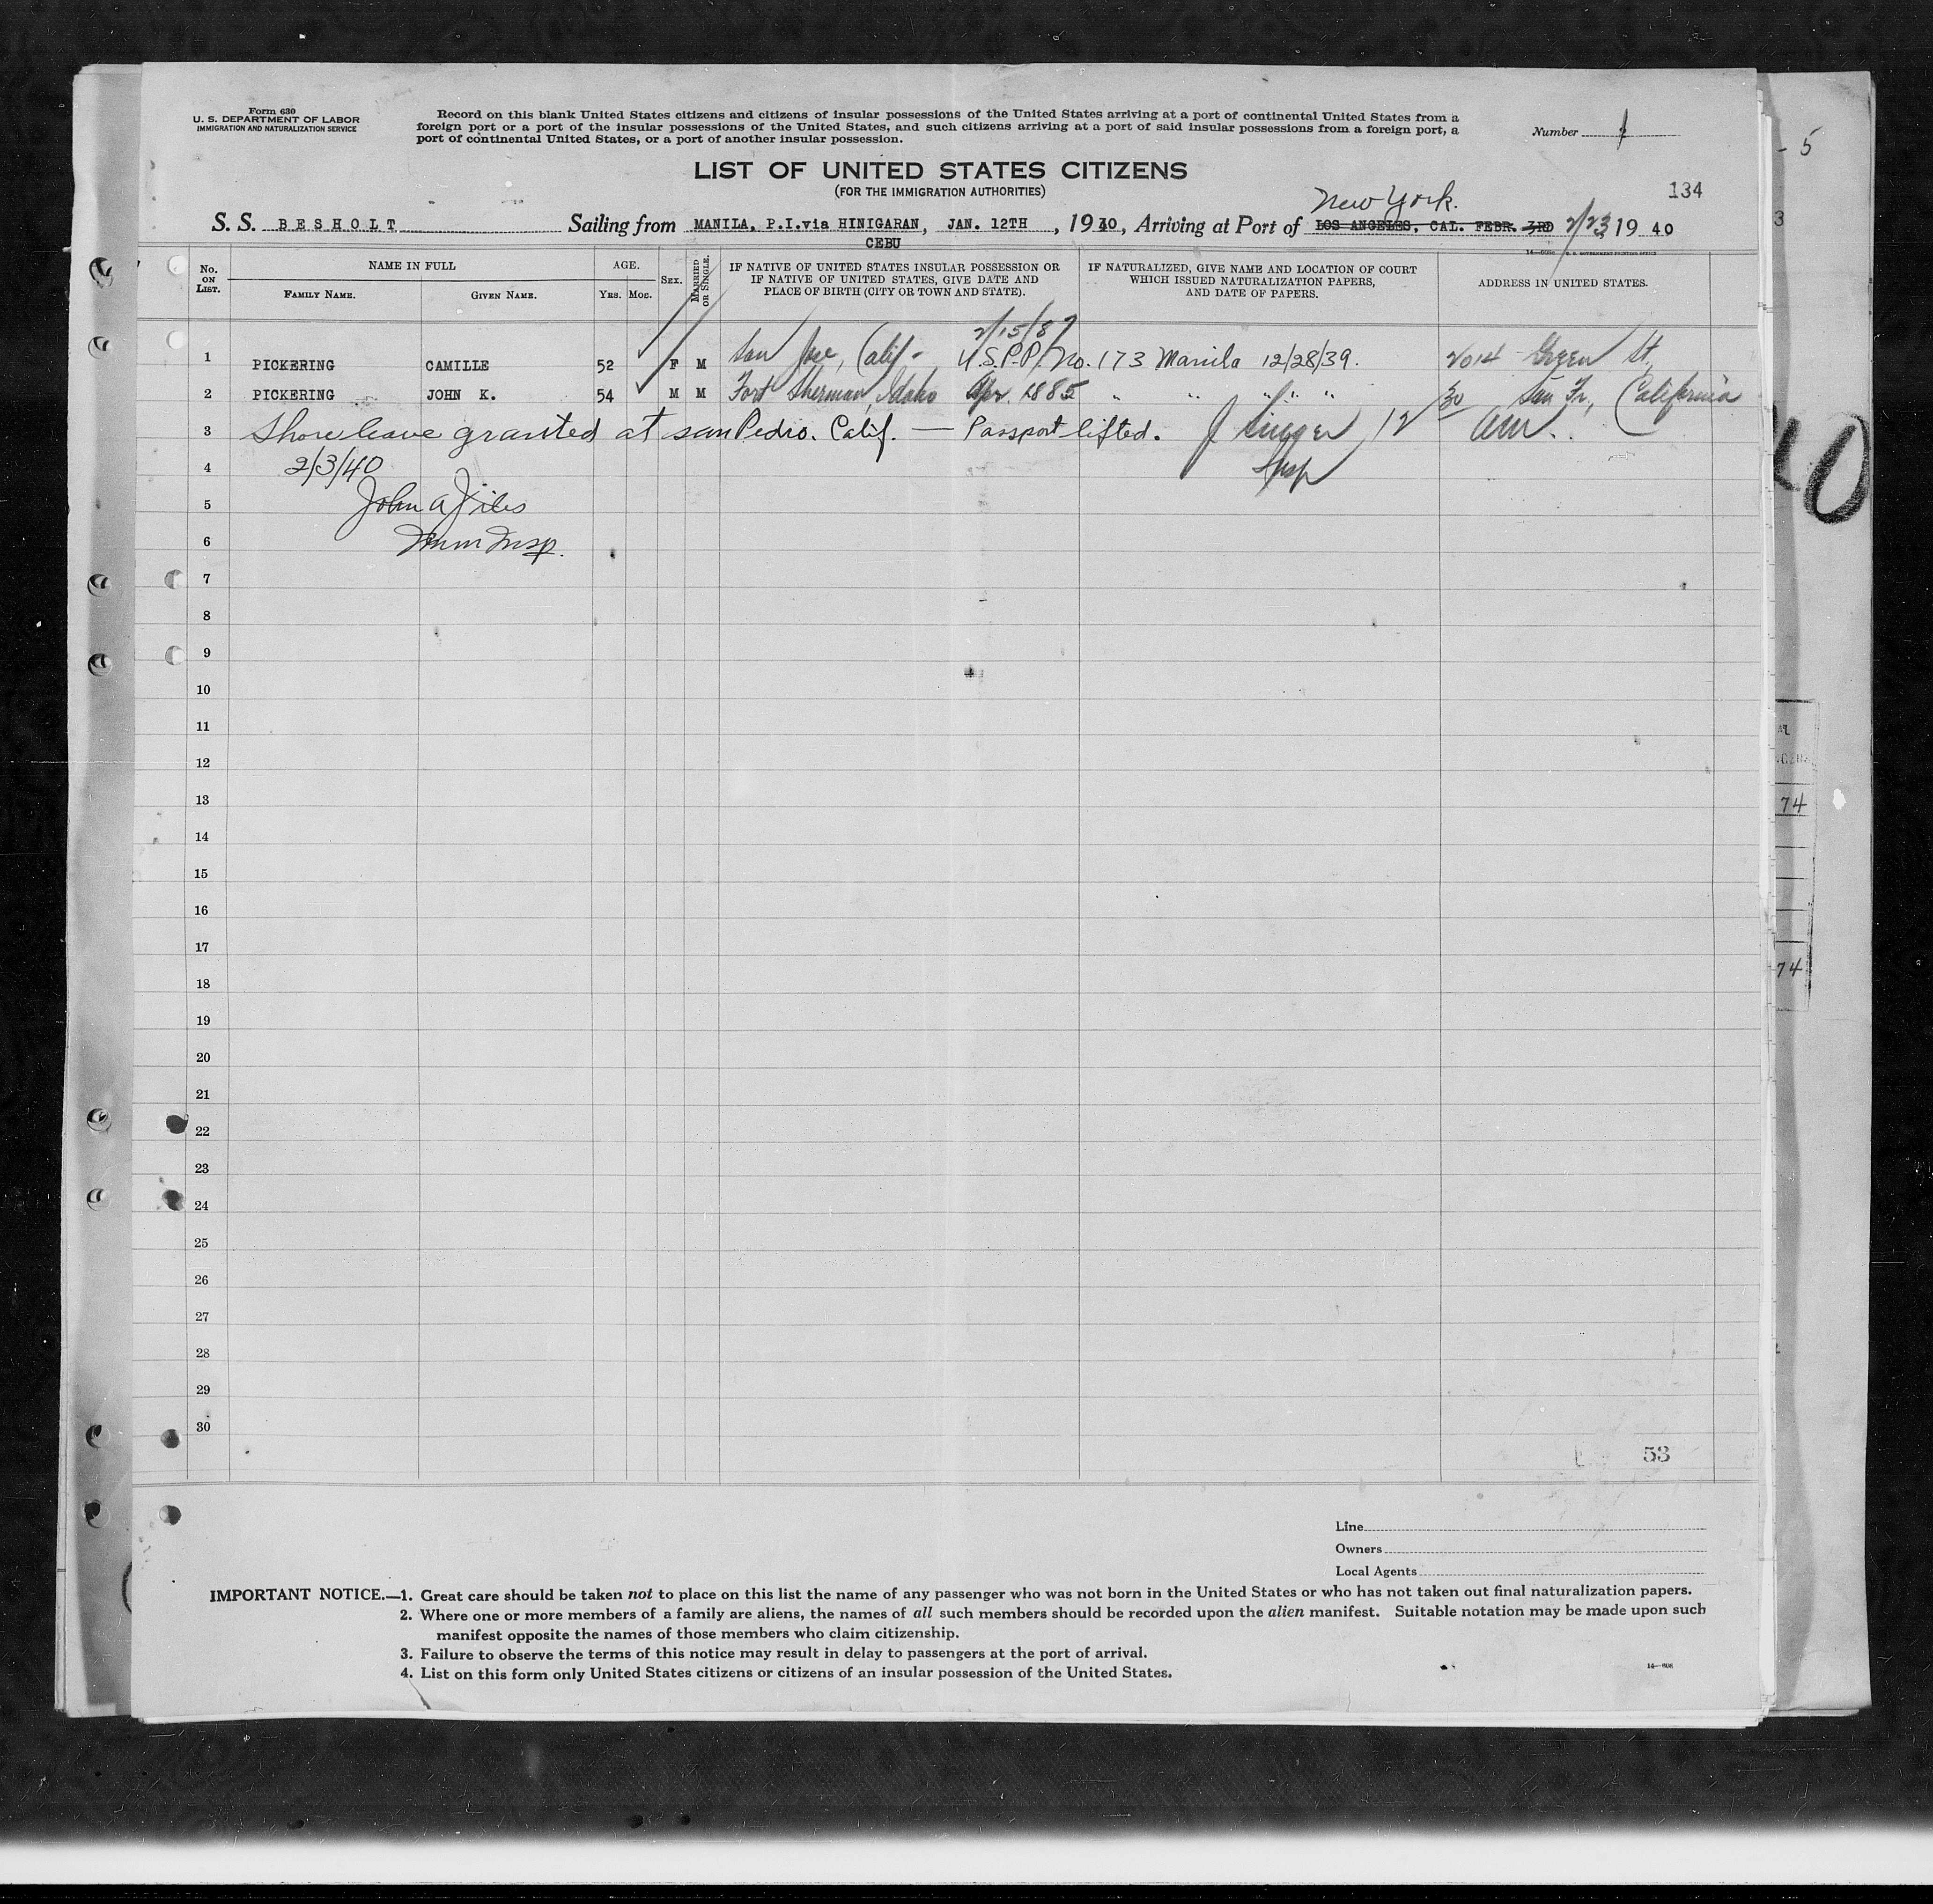 Form 630
U. S. DEPARTMENT OF LABOR
IMMIGRATION AND NATURALIZATION SERVICE
Record on this blank United States citizens and citizens of insular possessions of the United States arriving at a port of continental United States from a
foreign port or a port of the insular possessions of the United States, and such citizens arriving at a port of said insular possessions from a foreign port, a
port of continental United States, or a port of another insular possession.
Number 1
- 5
LIST OF UNITED STATES CITIZENS
(FOR THE IMMIGRATION AUTHORITIES)
134
New York.
S. S. BESHOLT Sailing from MANILA, P.I.via HINIGARAN, JAN. 12TH, 1940, Arriving at Port of LOS ANGELES, CAL. FEBR. 3RD 2/23 1940
CEBU
3
No. ON LIST.
NAME IN FULL
FAMILY NAME.
GIVEN NAME.
AGE.
YRS. MOS.
SEX.
MARRIED OR SINGLE.
IF NATIVE OF UNITED STATES INSULAR POSSESSION OR
IF NATIVE OF UNITED STATES, GIVE DATE AND
PLACE OF BIRTH (CITY OR TOWN AND STATE).
IF NATURALIZED, GIVE NAME AND LOCATION OF COURT
WHICH ISSUED NATURALIZATION PAPERS,
AND DATE OF PAPERS.
ADDRESS IN UNITED STATES.
2/15/87
1 PICKERING CAMILLE 52 F M San Jose, Calif- U.S.P.P. No. 173 Manila 12/28/39. 2014 Green St.,
2 PICKERING JOHN K. 54 M M Fort Sherman, Idaho Apr. 1885 " " " " " San Fr., California
3 Shore leave granted at san Pedro. Calif. — Passport lifted.
Insp
4 2/3/40
5 John A Jiles
6 Imm Insp.
7
8
9
10
11
12
13
14
15
16
17
18
19
20
21
22
23
24
25
26
27
28
29
30
74
74
53
Line
Owners
Local Agents
IMPORTANT NOTICE.—1. Great care should be taken not to place on this list the name of any passenger who was not born in the United States or who has not taken out final naturalization papers.
2. Where one or more members of a family are aliens, the names of all such members should be recorded upon the alien manifest. Suitable notation may be made upon such
manifest opposite the names of those members who claim citizenship.
3. Failure to observe the terms of this notice may result in delay to passengers at the port of arrival.
4. List on this form only United States citizens or citizens of an insular possession of the United States.